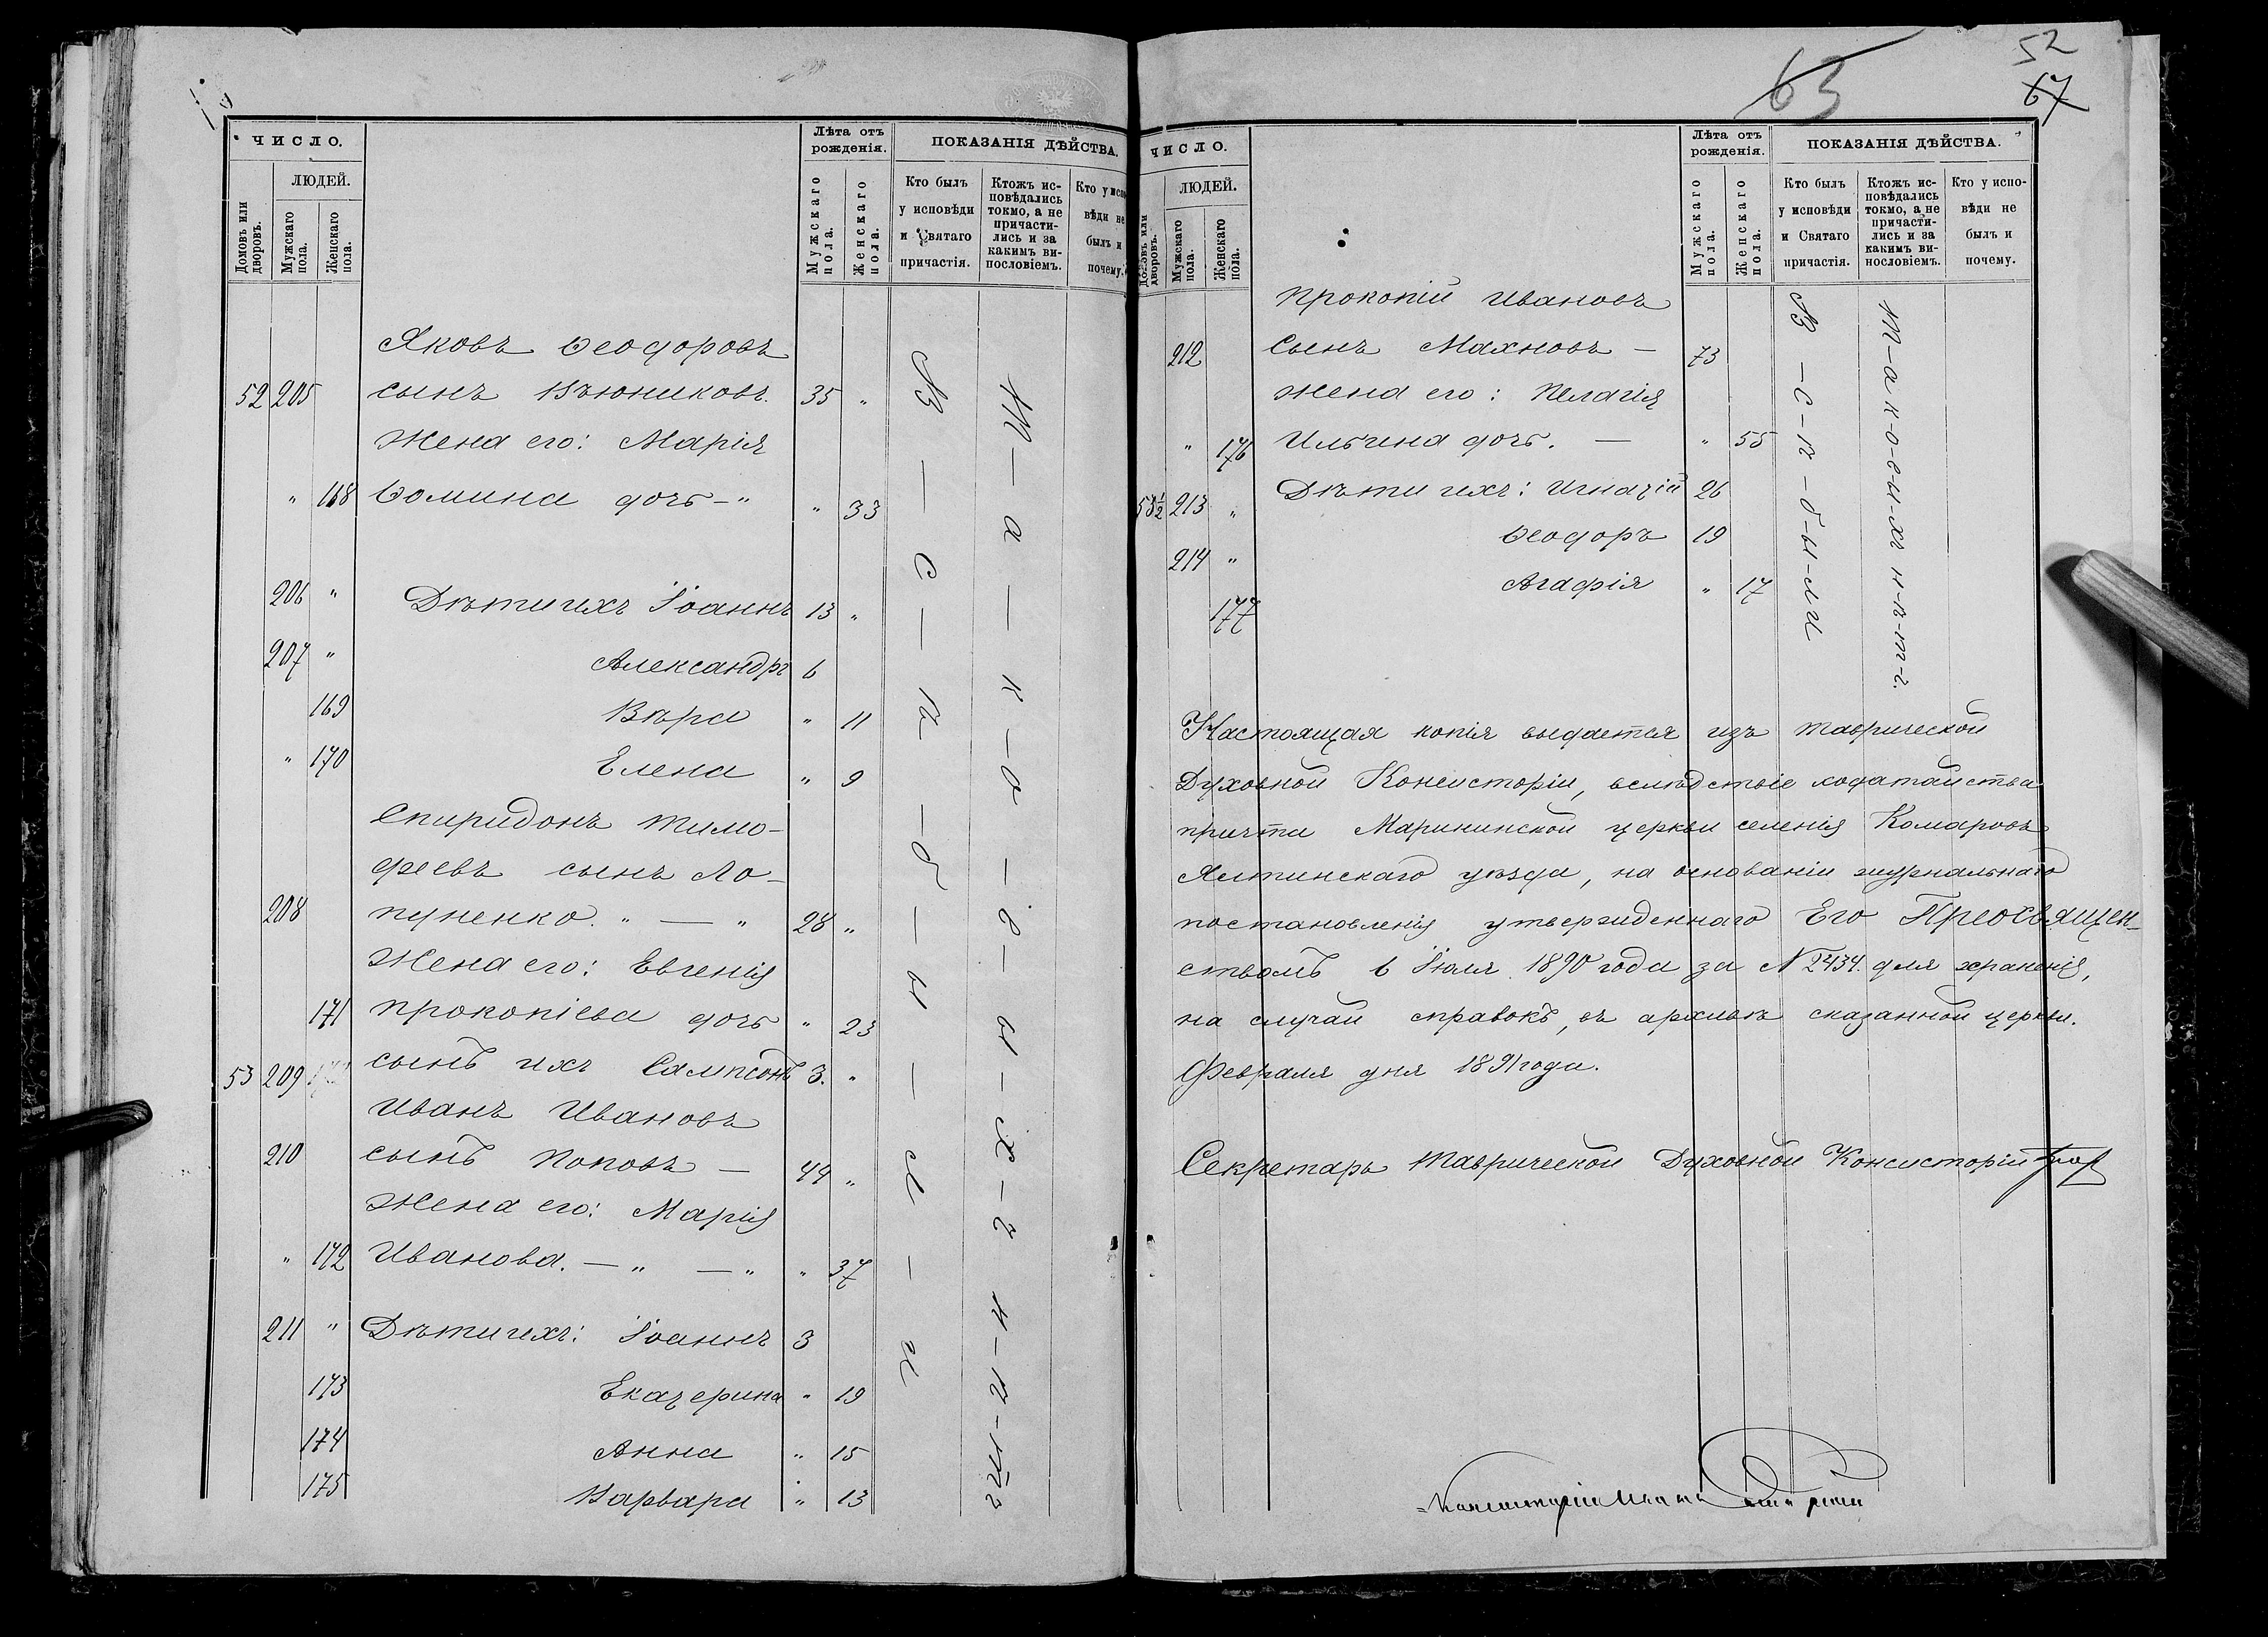 ЧИСЛО.
ЛЮДЕЙ.
Домовъ или дворовъ.
Мужскаго пола.
Женскаго пола.
Лѣта отъ рожденія.
Мужскаго пола.
Женскаго пола.
ПОКАЗАНІЯ ДѢЙСТВА.
Кто былъ у исповѣди и Святаго причастія.
Ктожъ исповѣдались токмо, а не причастились и за какимъ винословіемъ.
Кто у испо-
вѣди не
былъ и
почему.
Яковъ Ѳеодоровъ
52 205 сынъ Вьюниковъ. 35 "
Жена его: Марія
" 168 Ѳомина дочь - " " 33
206 " Дѣти ихъ Іоаннъ 13 "
207 " Александръ 6
169 Вѣра " 11
" 170 Елена " 9
Спиридонъ Тимо-
феевъ сынъ Ло-
208 пуненко. " — " 28 "
Жена его: Евгенія
171 Прокопіева дочь " 23
53 209 сынъ ихъ Сампсонъ 3. "
Иванъ Ивановъ
210 сынъ Поповъ — 44 "
Жена его: Марія
" 172 Иванова. — " — " " 37
211 " Дѣти ихъ: Іоаннъ 3
173 Екатерина " 19
174 Анна " 15
175 Варвара " 13
В — с — ѣ — б — ы — л — и
Т — а — к — о — в — ы — х — ъ н — ѣ — т — ъ
63
52
67
ЧИСЛО.
ЛЮДЕЙ.
Домовъ или дворовъ.
Мужскаго пола.
Женскаго пола.
Лѣта отъ рожденія.
Мужскаго пола.
Женскаго пола.
ПОКАЗАНІЯ ДѢЙСТВА.
Кто былъ у исповѣди и Святаго причастія.
Ктожъ исповѣдались токмо, а не причастились и за какимъ винословіемъ.
Кто у испо-
вѣди не
былъ и
почему.
Прокопій Ивановъ
212 Сынъ Махновъ — 73
жена его: Пелагія
" 176 Ильина дочь. — " 55
53½ 213 " Дѣти ихъ: Игнатій 26
214 " Ѳеодоръ 19
177 Агафія " 17
В - с - ѣ - б - ы - л и
Т - а к - о - в ы - х ъ н - ѣ - т - ъ.
Настоящая копія выдается изъ Таврической
Духовной Консисторіи, вслѣдствіе ходатайства
причта Маріинской церкви селенія Комаровъ
Ялтинскаго уѣзда, на основаніи журнальнаго
постановленія утвержденнаго Его Преосвящен-
ствомъ 6 Іюля 1890 года за № 2434. для храненія,
на случай справокъ, въ архивѣ сказанной церкви.
Февраля дня 1891 года.
Секретарь Таврической Духовной Консисторіи